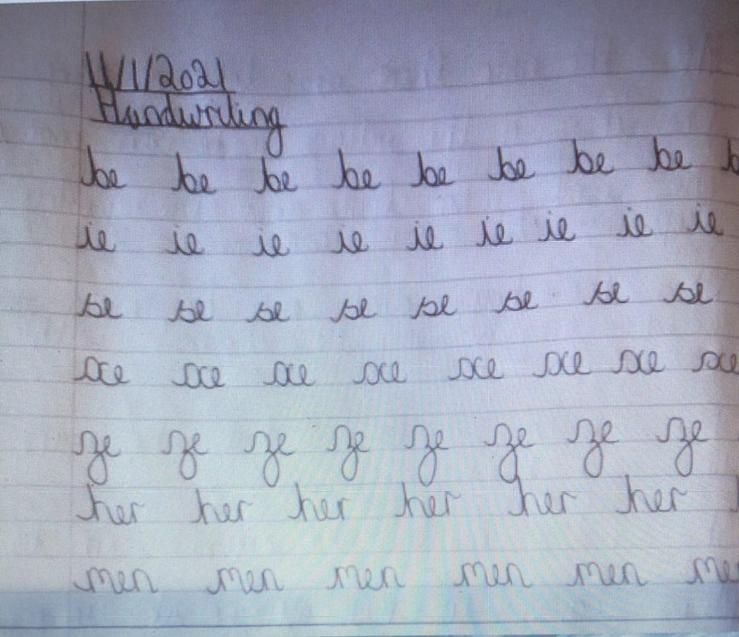 11/1/2021
Handwriting
be be be be be be be be b
ie ie ie ie ie ie ie ie ie
se se se se se se se se
xe xe xe xe xe xe xe xe
ze ze ze ze ze ze ze ze
her her her her her her
men men men men men me